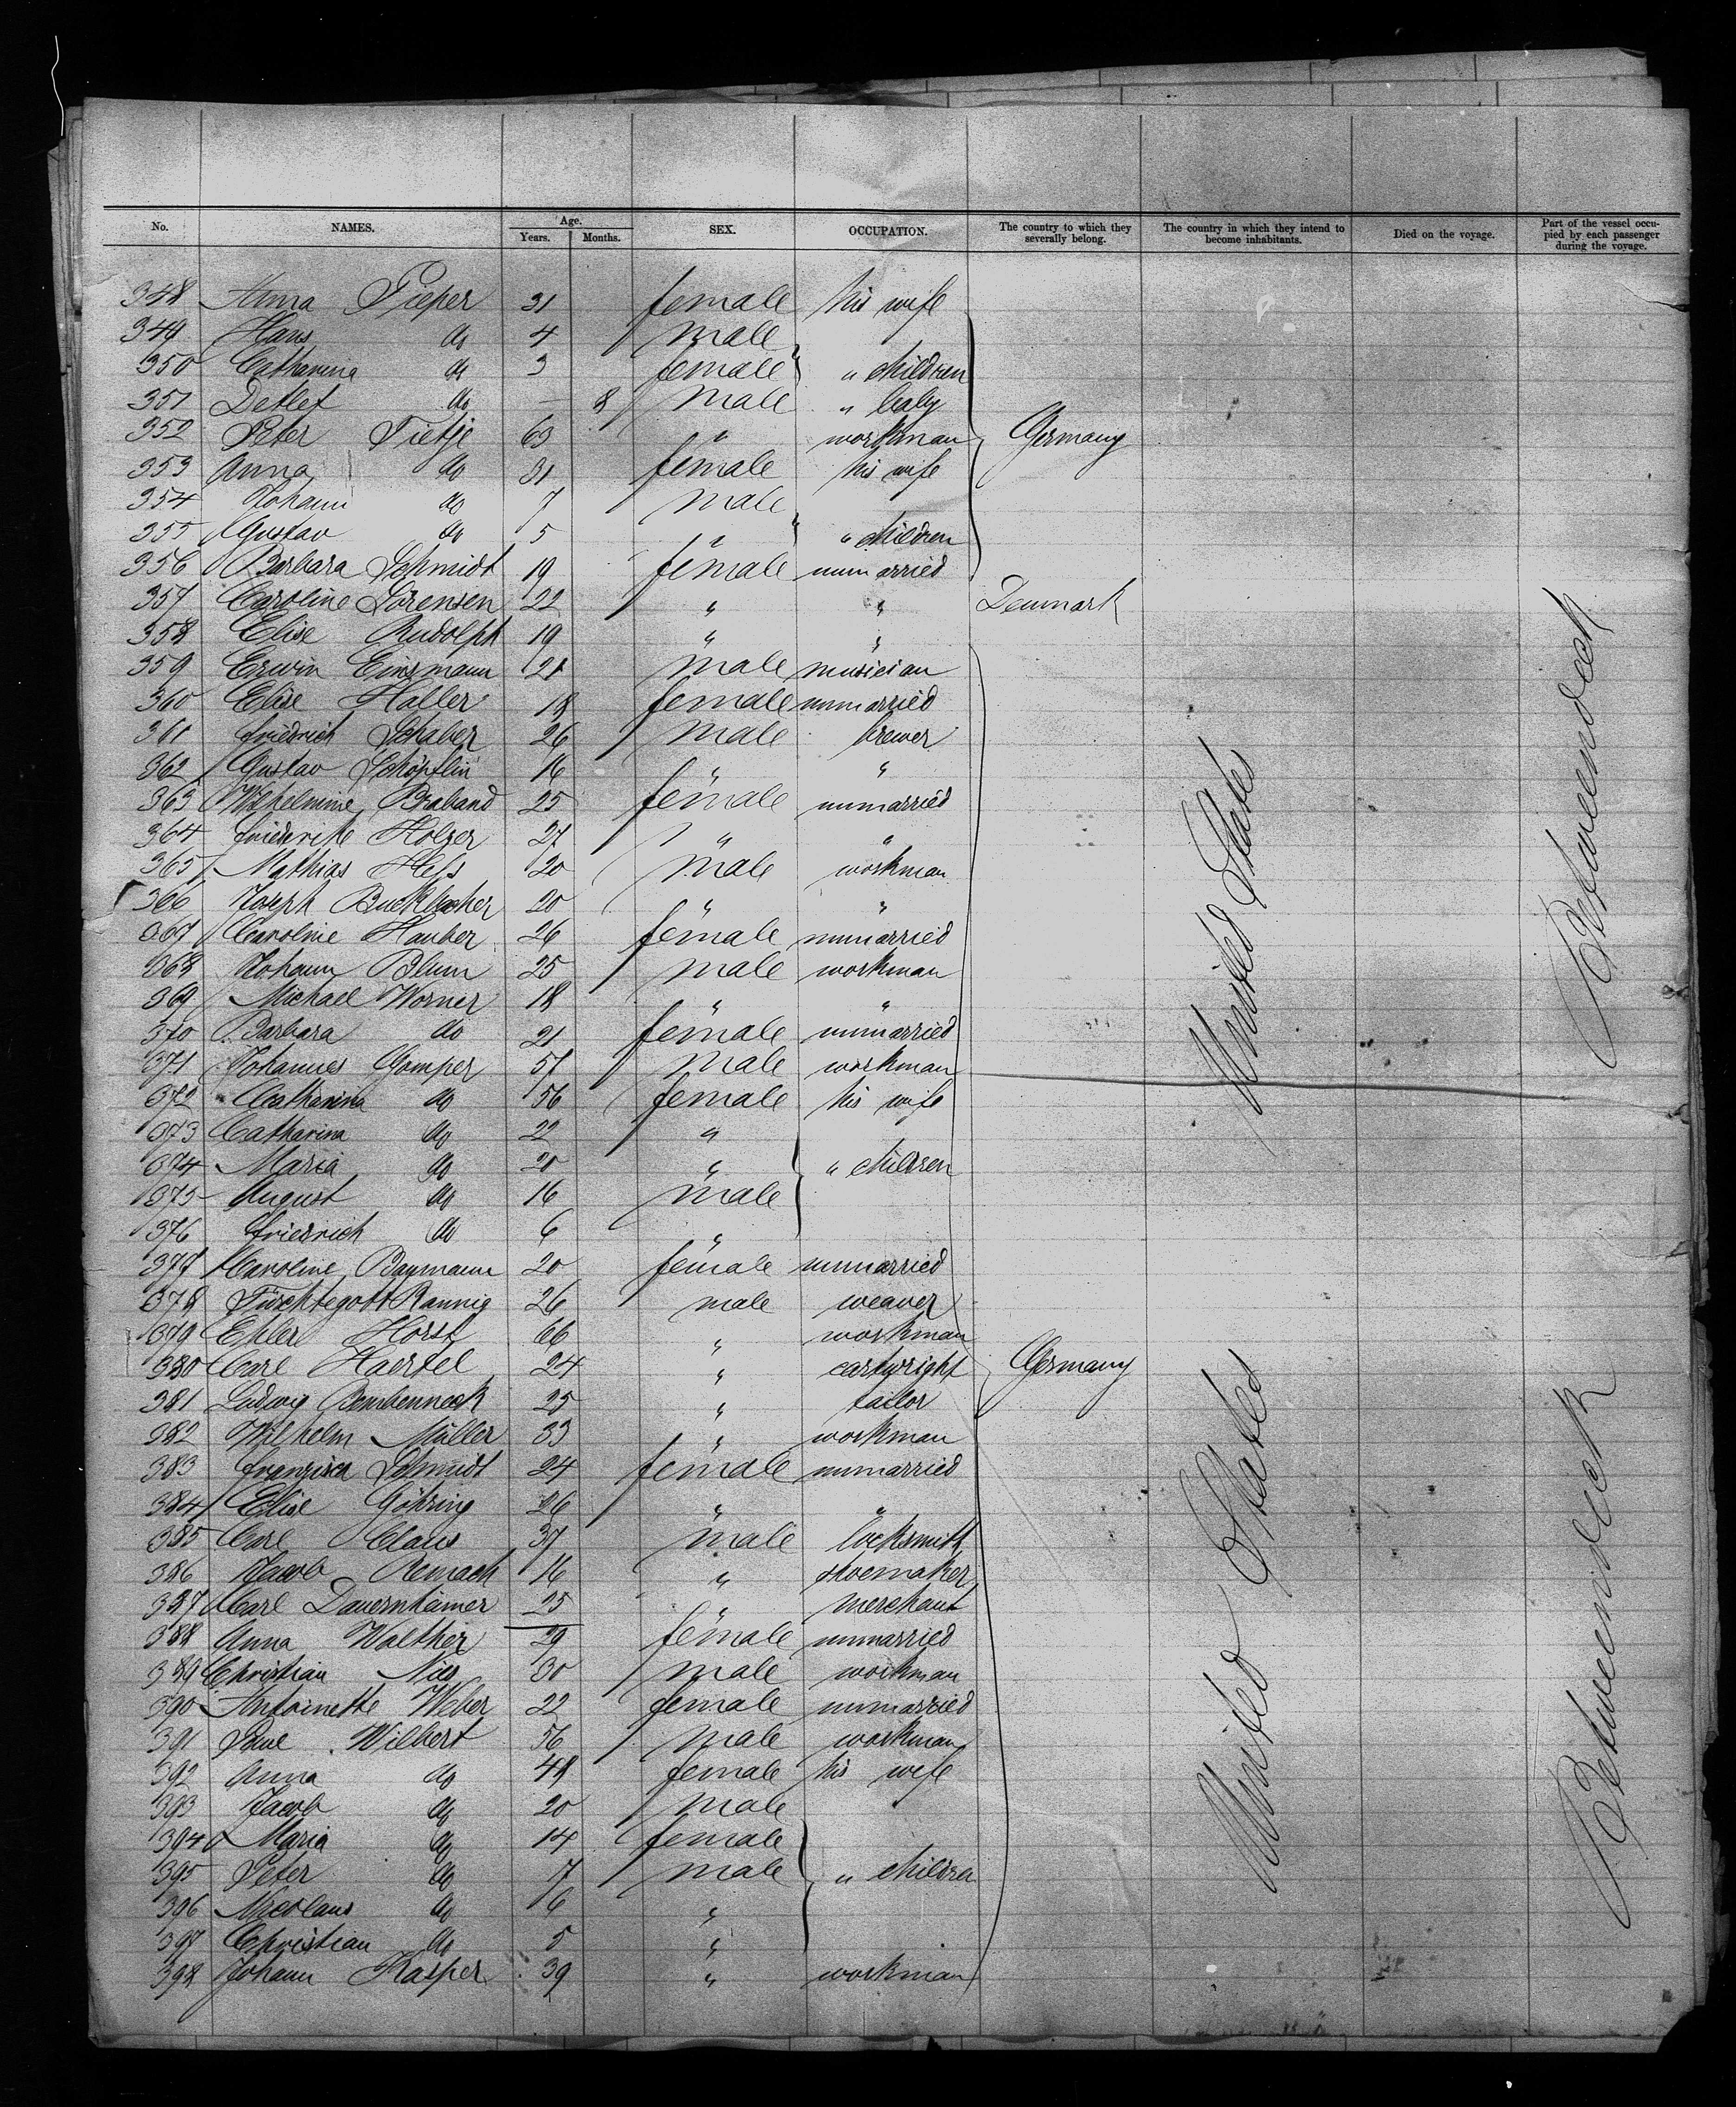 No. NAMES. Age. Years. Months. SEX. OCCUPATION. The country to which they severally belong. The country in which they intend to become inhabitants. Died on the voyage. Part of the vessel occupied by each passenger during the voyage.
348 Anna Pieper 31 female his wife
349 Hans do 4 male
350 Catharina do 3 female " children
351 Detlef do — 8 male " baby
352 Peter Tietje 63 " workman Germany
353 Anna do 31 female his wife
354 Johann do 7 male
355 Gustav do 5 " " children
356 Barbara Schmidt 19 female unmarried
357 Caroline Sörensen 22 " " Denmark
358 Elise Rudolph 19 " "
359 Erwin Einsmann 21 male musician
360 Elise Haller 18 female unmarried
361 Friedrich Schaber 26 male brewer
362 Gustav Schöpflin 16 " "
363 Wilhelmine Braband 25 female unmarried
364 Friederike Holzer 27 " "
365 Mathias Hess 20 male workman
366 Joseph 20 " "
367 Caroline Hauber 26 female unmarried
368 Johann Blum 25 male workman
369 Michael Worner 18 " "
370 Barbara do 21 female unmarried
371 Johannes Gomper 57 male workman
372 Catharina do 56 female his wife
373 Catharina do 22 "
374 Maria do 20 " " children
375 August do 16 male
376 Friedrich do 6 "
377 Caroline Baymann 20 female unmarried
378 Fürchtegott Rannig 26 male weaver
379 Ehler Horst 66 " workman
380 Carl Haertel 24 " cartwright Germany
381 Ludwig Bembenneck 25 " tailor
382 Wilhelm Müller 33 " workman
383 Franzisca Schmidt 24 female unmarried
384 Elise Göhring 26 " "
385 Carl Claus 37 male locksmith
386 Jacob Remach 16 " shoemaker
387 Carl Dauernheimer 25 " merchant
388 Anna Walther 29 female unmarried
389 Christian Nies 30 male workman
390 Antoinette Weber 22 female unmarried
391 Paul Wilbert 56 male workman
392 Anna do 48 female his wife
393 Jacob do 20 male
394 Maria do 14 female
395 Peter do 7 male " children
396 Nicolaus do 6 "
397 Christian do 5 "
398 Johann Kasper 39 " workman
United States
Betweendeck
United States
Betweendeck